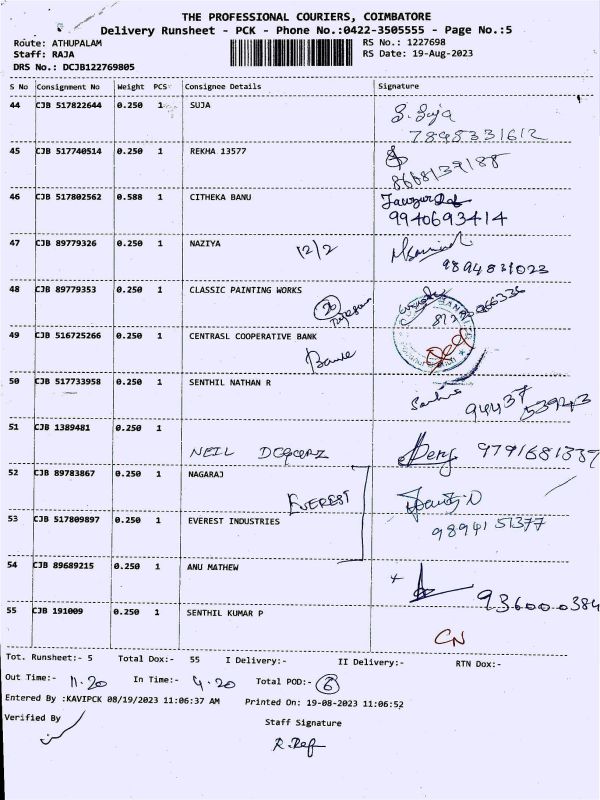 THE PROFESSIONAL COURIERS, COIMBATORE
Delivery Runsheet - PCK - Phone No.:0422-3505555 - Page No.:5
Route: ATHUPALAM RS No.: 1227698
Staff: RAJA RS Date: 19-Aug-2023
DRS No.: DCJB122769805
S No Consignment No Weight PCS Consignee Details Signature
44 CJB 517822644 0.250 1 SUJA S. Suja
7898331612
45 CJB 517740514 0.250 1 REKHA 13577
8668139188
46 CJB 517802562 0.588 1 CITHEKA BANU
9940693414
47 CJB 89779326 0.250 1 NAZIYA 12/2
9894831023
48 CJB 89779353 0.250 1 CLASSIC PAINTING WORKS
49 CJB 516725266 0.250 1 CENTRASL COOPERATIVE BANK
50 CJB 517733958 0.250 1 SENTHIL NATHAN R
94437
51 CJB 1389481 0.250 1
NEIL
52 CJB 89783867 0.250 1 NAGARAJ
EVEREST
53 CJB 517809897 0.250 1 EVEREST INDUSTRIES
9894151377
54 CJB 89689215 0.250 1 ANU MATHEW
936000384
55 CJB 191009 0.250 1 SENTHIL KUMAR P
CN
Tot. Runsheet:- 5 Total Dox:- 55 I Delivery:- II Delivery:- RTN Dox:-
Out Time:- 11.20 In Time:- 4.20 Total POD:- 6
Entered By :KAVIPCK 08/19/2023 11:06:37 AM Printed On: 19-08-2023 11:06:52
Verified By Staff Signature